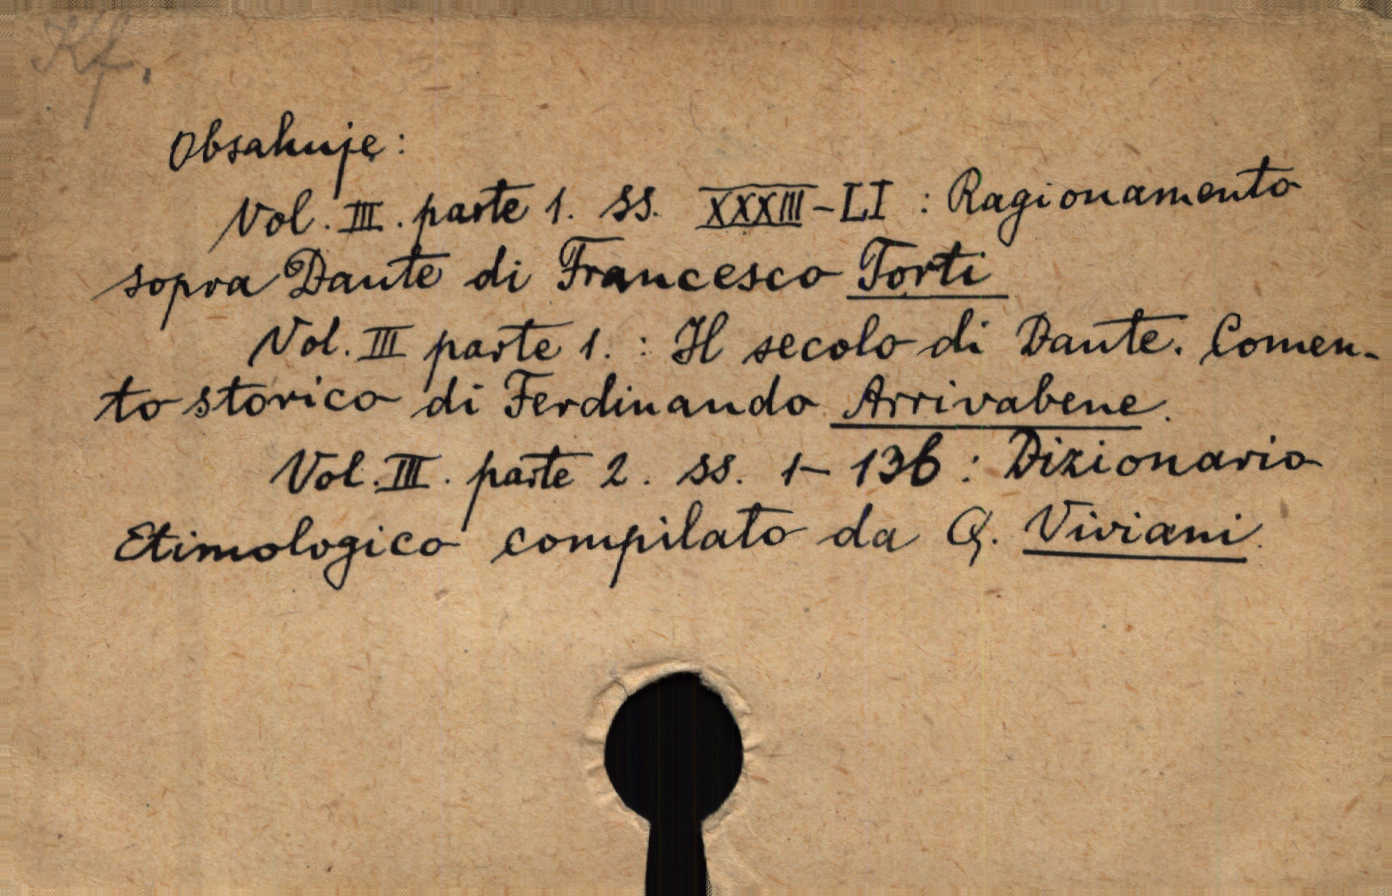 Kf.
Obsahuje:
Vol. III. parte 1. ss. XXXIII-LI : Ragionamento
sopra Dante di Francesco Torti
Vol. III parte 1. : Il secolo di Dante. Comen-
to storico di Ferdinando Arrivabene.
Vol. III. parte 2. ss. 1-136 : Dizionario
Etimologico compilato da Q. Viviani.